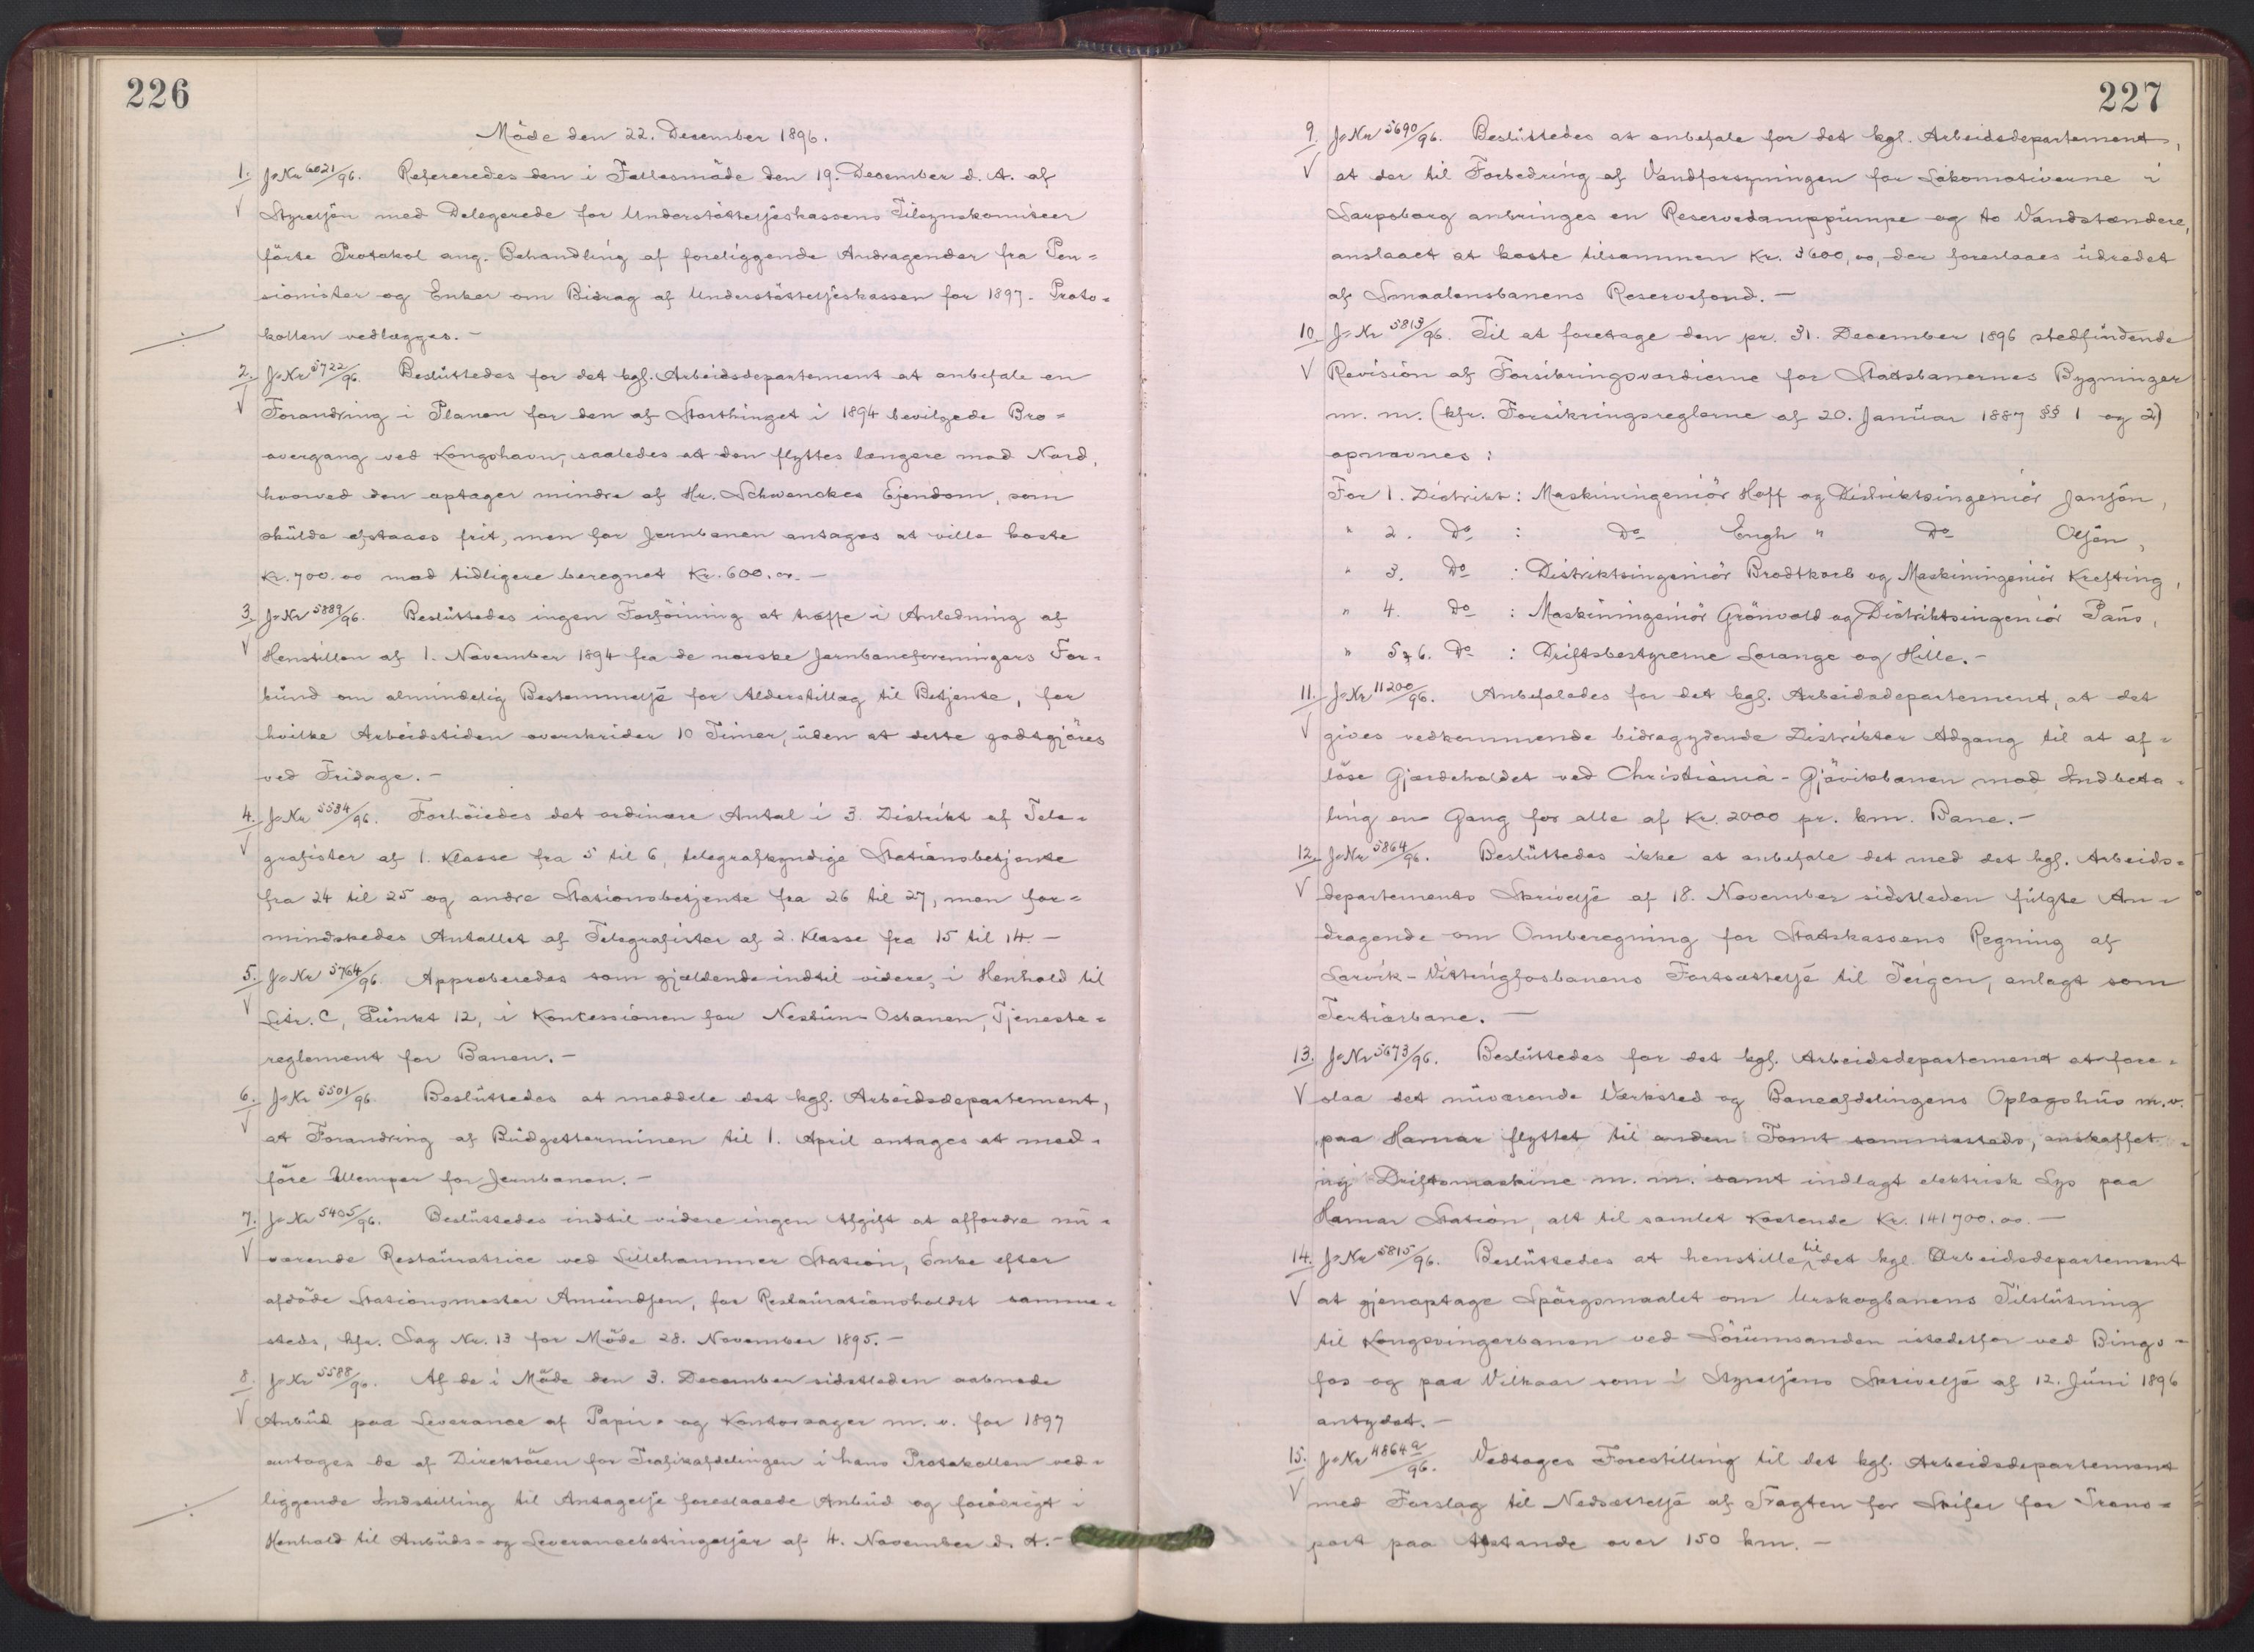 226
Møde den 22. December 1896.
1. J№Nr 6021/96. Refereredes den i Fællesmøde den 19. December d. A. af
Styrelsen med Delegerede for Understøttelseskassens Tilsynskomiteer
førte Protokol ang. Behandling af foreliggende Andragender fra Pen-
sionister og Enker om Bidrag af Understøttelseskassen for 1897. Proto-
kollen vedlægges.-
2. J№Nr 5722/96. Besluttedes for det kgl. Arbeidsdepartement at anbefale en
Forandring i Planen for den af Storthinget i 1894 bevilgede Bro-
overgang ved Kongshavn, saaledes at den flyttes længere mod Nord,
hvorved den optager mindre af Hr. Schwenckes Ejendom, som
skulde afstaaes frit, men for Jernbanen antages at ville koste
Kr. 700.00 mod tidligere beregnet Kr. 600.00.-
3. J№Nr 5889/96. Besluttedes ingen Forføining at træffe i Anledning af
Henstillen af 1. November 1894 fra de norske Jernbaneforeningers For-
bund om almindelig Bestemmelse for Alderstillæg til Betjente, for
hvilke Arbeidstiden overskrider 10 Timer, uden at dette godtgjøres
ved Fridage.-
4. J№Nr 5534/96. Forhøiedes det ordinære Antal i 3. Distrikt af Tele-
grafister af 1. Klasse fra 5 til 6, telegrafkyndige Stationsbetjente
fra 24 til 25 og andre Stationsbetjente fra 26 til 27, men for-
mindskedes Antallet af Telegrafister af 2. Klasse fra 15 til 14.-
5. J№Nr 5764/96. Approberedes som gjældende indtil videre, i Henhold til
Litr. C, Punkt 12, i Koncessionen for Nestun-Osbanen, Tjeneste-
reglement for Banen.-
6. J№Nr 5501/96. Besluttedes at meddele det kgl. Arbeidsdepartement,
at Forandring af Budgetterminen til 1. April antages at med-
føre Ulemper for Jernbanen.-
7. J№Nr 5405/96. Besluttedes indtil videre ingen Afgift at affordre nu-
værende Restauratrice ved Lillehammer Station, Enke efter
afdøde Stationsmester Amundsen, for Restaurationsholdet samme-
steds, kfr. Sag Nr. 13 for Møde 28. November 1895.-
8. J№Nr 5588/96. Af de i Møde den 3. December sidstleden aabnede
Anbud paa Leverance af Papir- og Kontorsager m. v. for 1897
antages de af Direktøren for Trafikafdelingen i hans Protokollen ved-
liggende Indstilling til Antagelse foreslaaede Anbud og forøvrigt i
Henhold til Anbuds- og Leverancebetingelser af 4. November d. A.-
227
9. J№Nr 5690/96. Besluttedes at anbefale for det kgl. Arbeidsdepartement,
at der til Forbedring af Vandforsyningen for Lokomotiverne i
Sarpsborg anbringes en Reservedamppumpe og to Vandstændere,
anslaaet at koste tilsammen Kr. 3600,00, der foreslaaes udredet
af Smaalensbanens Reservefond.-
10. J№Nr 5813/96. Til at foretage den pr. 31. December 1896 stedfindende
Revision af Forsikringsværdierne for Statsbanernes Bygninger
m. m. (kfr. Forsikringsreglerne af 20. Januar 1887 §§ 1 og 2)
opnævnes:
For 1. Distrikt: Maskiningeniør Hoff og Distriktsingeniør Jansen,
" 2. Do : Do Engh " Do Olsen,
" 3. Do : Distriktsingeniør Brodtkorb og Maskiningeniør Krefting,
" 4. Do : Maskiningeniør Grønvold og Distriktsingeniør Paus,
" 5 & 6. Do : Driftsbestyrerne Lorange og Hille.-
11. J№Nr 11200/96. Anbefaledes for det kgl. Arbeidsdepartement, at det
gives vedkommende bidragydende Distrikter Adgang til at af-
løse Gjærdeholdet ved Christiania-Gjøvikbanen mod Indbeta-
ling en Gang for alle af Kr. 2000 pr. km. Bane.-
12. J№Nr 5864/96. Besluttedes ikke at anbefale det med det kgl. Arbeids-
departements Skrivelse af 18. November sidstleden fulgte An-
dragende om Omberegning for Statskassens Regning af
Larvik-Vittingfosbanens Fortsættelse til Teigen, anlagt som
Tertiærbane.-
13. J№Nr 5673/96. Besluttedes for det kgl. Arbeidsdepartement at fore-
slaa det nuværende Værksted og Baneafdelingens Oplagshus m.v.
paa Hamar flyttet til anden Tomt sammesteds, anskaffet
ny Driftsmaskine m. m. samt indlagt elektrisk Lys paa
Hamar Station, alt til samlet Kostende Kr. 141700.00.-
14. J№Nr 5815/96. Besluttedes at henstille til det kgl. Arbeidsdepartement
at gjenoptage Spørgsmaalet om Urskogbanens Tilslutning
til Kongsvingerbanen ved Sørumsanden istedetfor ved Bings-
fos og paa Vilkaar som i Styrelsens Skrivelse af 12. Juni 1896
antydet.-
15. J№Nr 4864a/96. Vedtages Forestilling til det kgl. Arbeidsdepartement
med Forslag til Nedsættelse af Fragten for Skifer for Trans-
port paa Afstande over 150 km.-